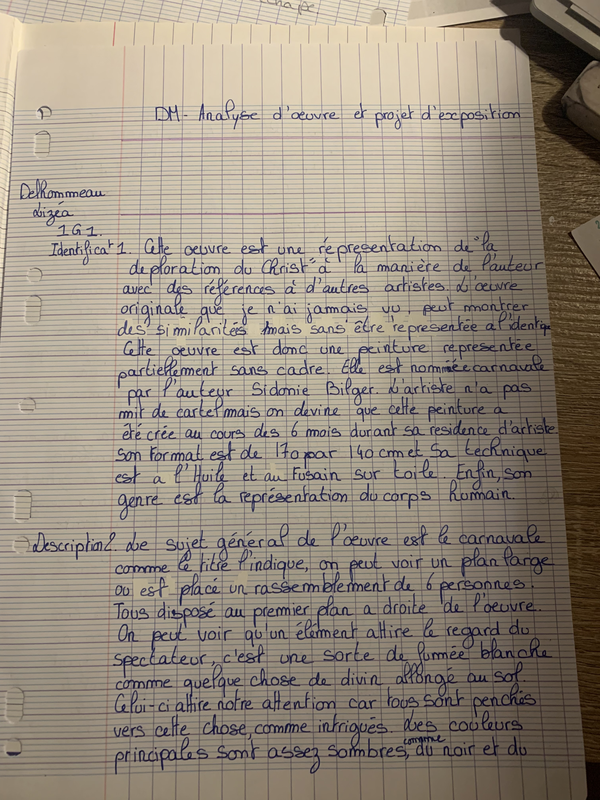 DM - Analyse d'œuvre et projet d'exposition
Delhommeau
Lizéa
1G1.
Identificat° 1. Cette oeuvre est une répresentation de "la
deploration du Christ" à la manière de l'auteur
avec des références à d'autres artistes. L'œuvre
originale que je n'ai jamais vu, peut montrer
des similarités mais sans être representée a l'identique
Cette oeuvre est donc une peinture representée
partiellement sans cadre. Elle est nommée carnavale
par l'auteur Sidonie Bilger. L'artiste n'a pas
mit de cartel mais on devine que cette peinture a
été crée au cours des 6 mois durant sa residence d'artiste
Son format est de 170 par 140 cm et sa technique
est a l'Huile et au Fusain sur toile. Enfin, son
genre est la représentation du corps humain.
Description 2. Le sujet général de l'oeuvre est le carnavale
comme le titre l'indique, on peut voir un plan large
ou est placé un rassemblement de 6 personnes.
Tous disposé au premier plan a droite de l'oeuvre.
On peut voir qu'un élément attire le regard du
spectateur, c'est une sorte de fumée blanche
comme quelque chose de divin allongé au sol.
Celui-ci attire notre attention car tous sont penchés
vers cette chose, comme intrigués. Les couleurs
principales sont assez sombres, comme du noir et du